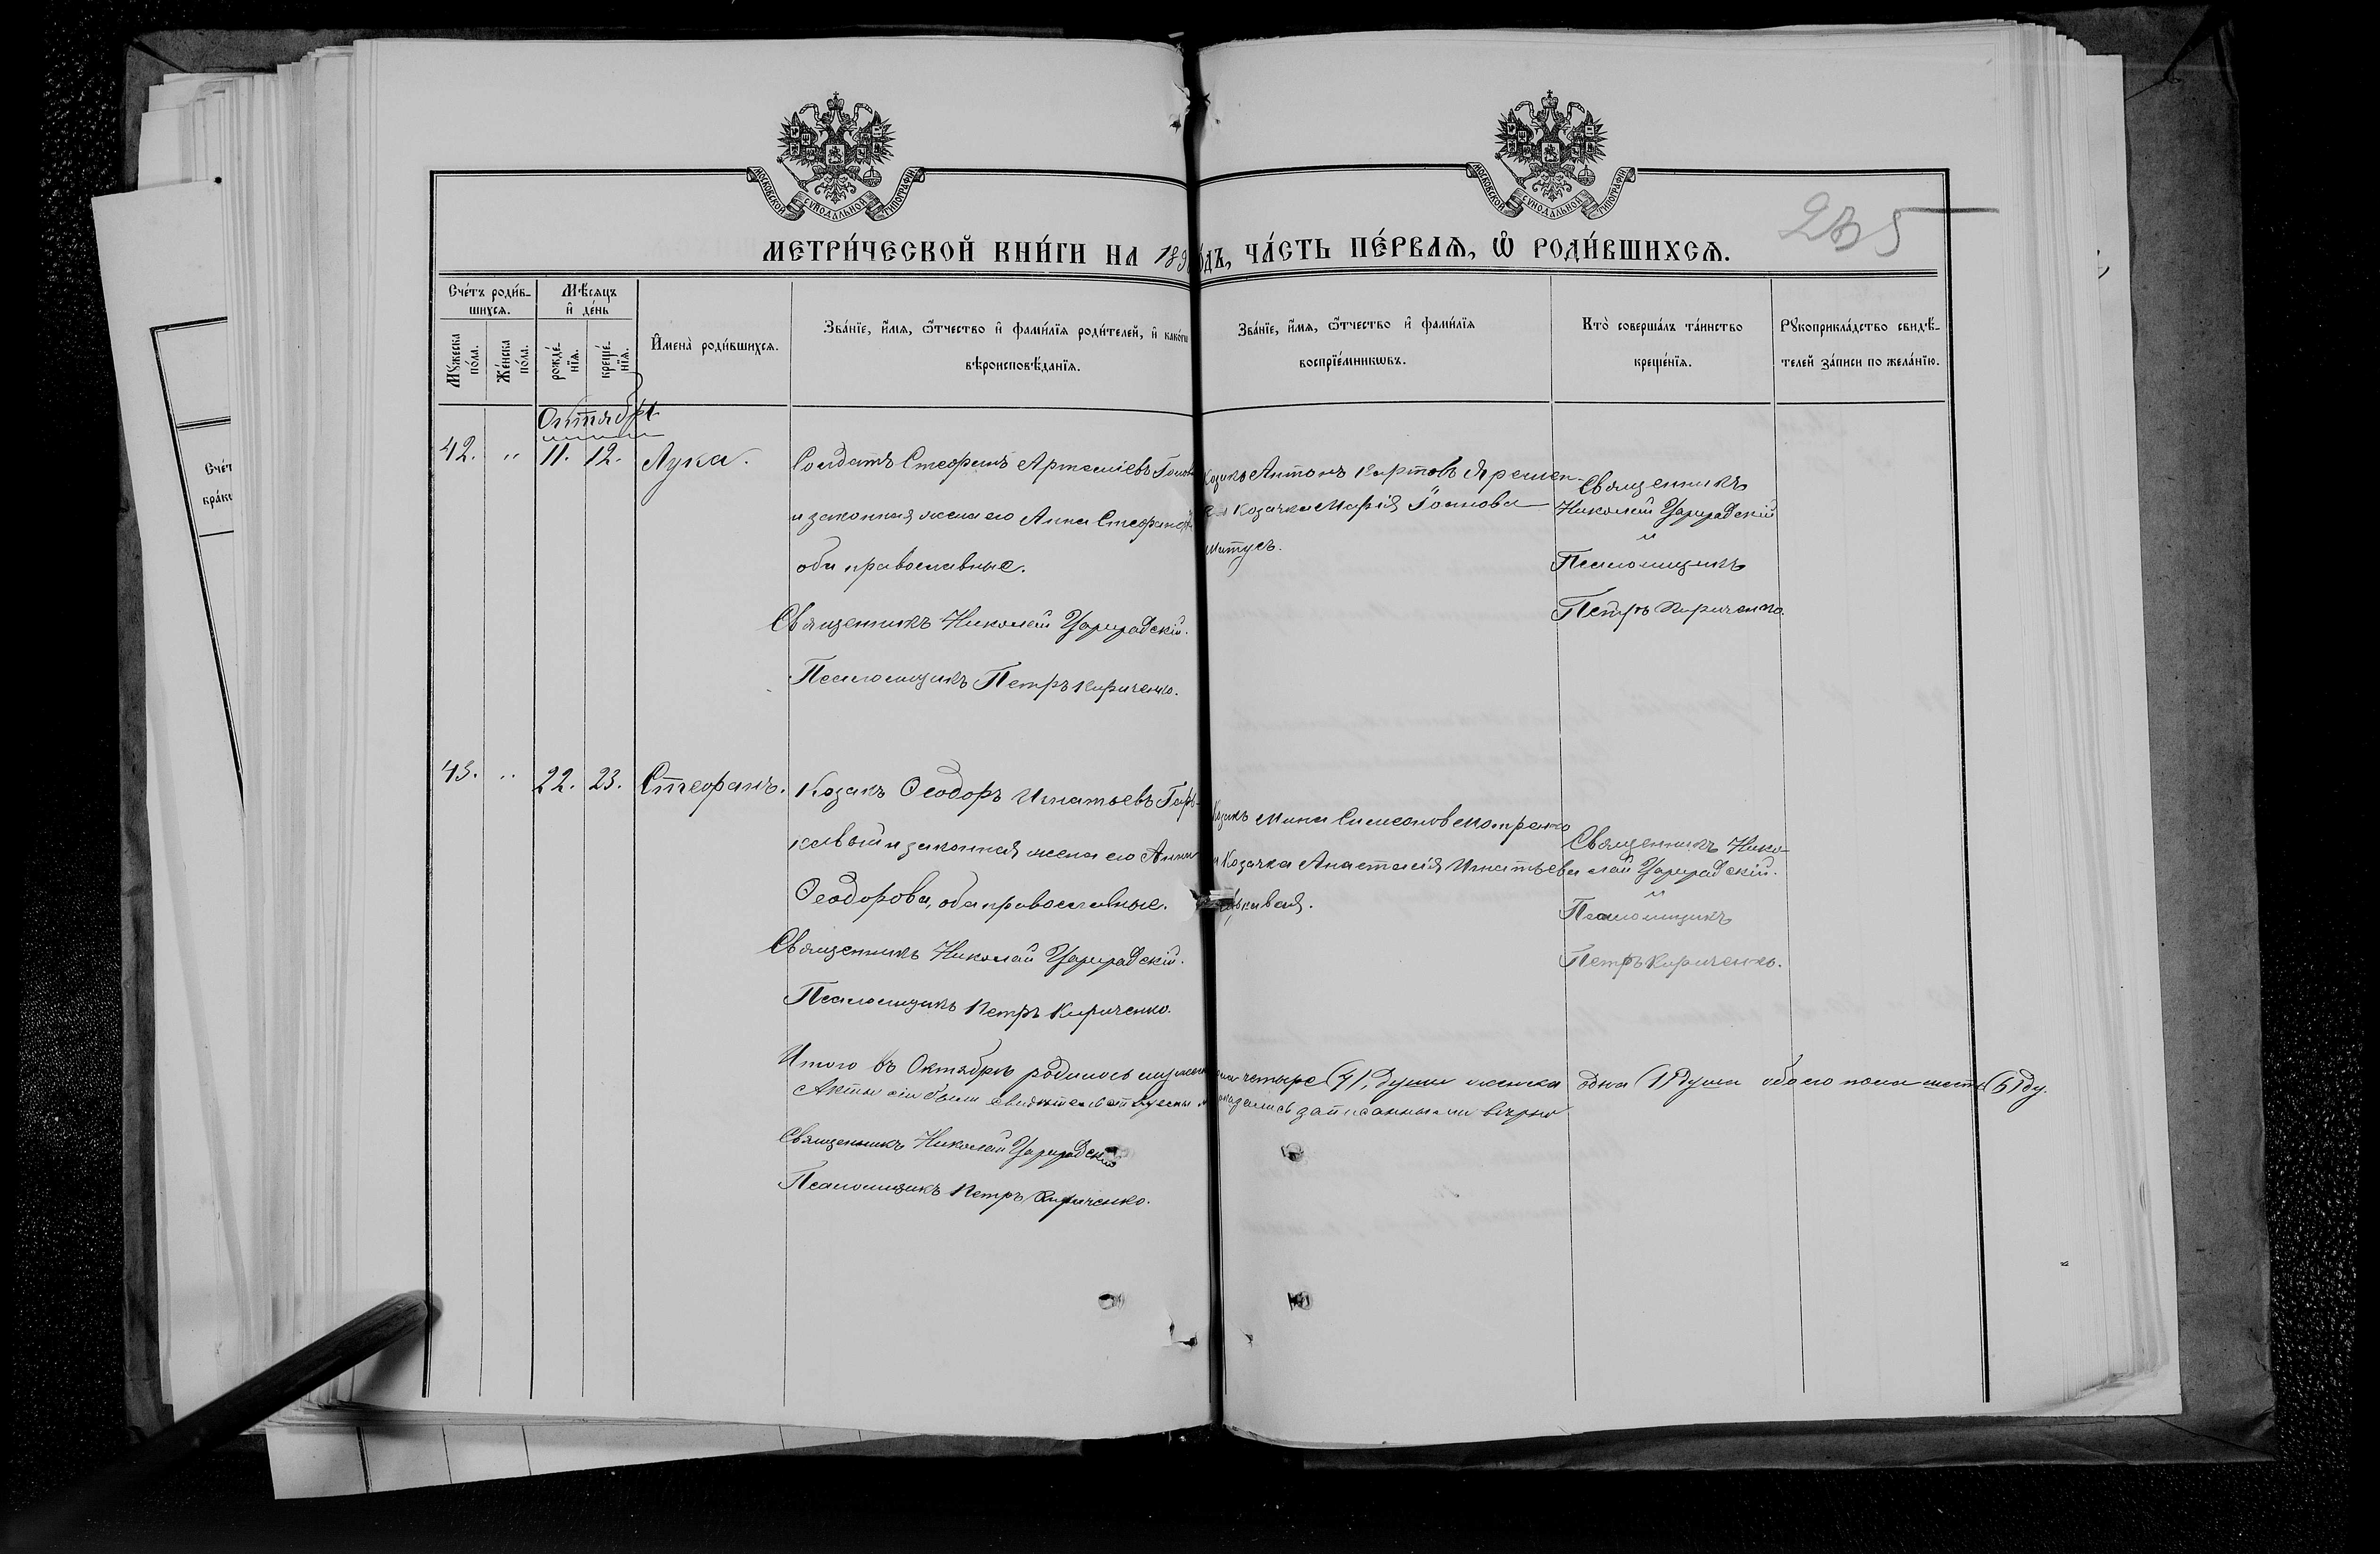 МОСКОВСКОЙ СУНОДАЛЬНОЙ ТИПОГРАФІИ
МОСКОВСКОЙ СУНОДАЛЬНОЙ ТИПОГРАФІИ
235
МЕТРИ́ЧЕСКОЙ КНИ́ГИ НА 189 ЧА́СТЬ ПЕ́РВАѦ, Ѽ РОДИ́ВШИХСѦ.
Сче́тъ роди́в-
шихсѧ.
Мѣ́сѧцъ
и҆ де́нь
Мꙋ́жеска по́ла.
Же́нска по́ла.
рожде́-нїѧ.
креще́-нїѧ.
И҆мена̀ роди́вшихсѧ.
Зва́нїе, и҆́мѧ, ѻ҆́тчество и҆ фами́лїѧ роди́телей, и҆ како́гѡ
вѣроисповѣ́данїѧ.
Зва́нїе, и҆́мѧ, ѻ҆́тчество и҆ фами́лїѧ
воспрїе́мникѡвъ.
Кто̀ соверша́лъ та́инство
креще́нїѧ.
Рꙋкоприкла́дство свидѣ́-
телей за́писи по жела́нїю.
Октябрь
42. " 11. 12. Лука.
Солдатъ Стефанъ Артеміевъ
и законная жена его Анна
оба православные.
Священникъ Николай Цареградскій.
Псаломщикъ Петръ Кириченко.
Козакъ Антонъ
Козачка Марія Іоанова
Матусъ.
Священникъ
Николай Цареградскій
и
Псаломщикъ
Петръ Кириченко.
43. " 22. 23. Стефанъ.
Козакъ Ѳеодоръ Игнатьевъ
и законная жена его Анна
Ѳеодорова, оба православные.
Священникъ Николай Цареградскій.
Псаломщикъ Петръ Кириченко.
Козакъ Мина Симеоновъ
и Козачка Анастасія Игнатьева
Священникъ Нико-
лай Цареградскій.
и
Псаломщикъ
Петръ Кириченко.
Итого въ Октябрѣ родилось четыре (4) души женска одна (1) душа обоего пола
Акты сіи были оказались записанными вѣрно
Священникъ Николай Цареградскій
Псаломщикъ Петръ Кириченко.
Счет